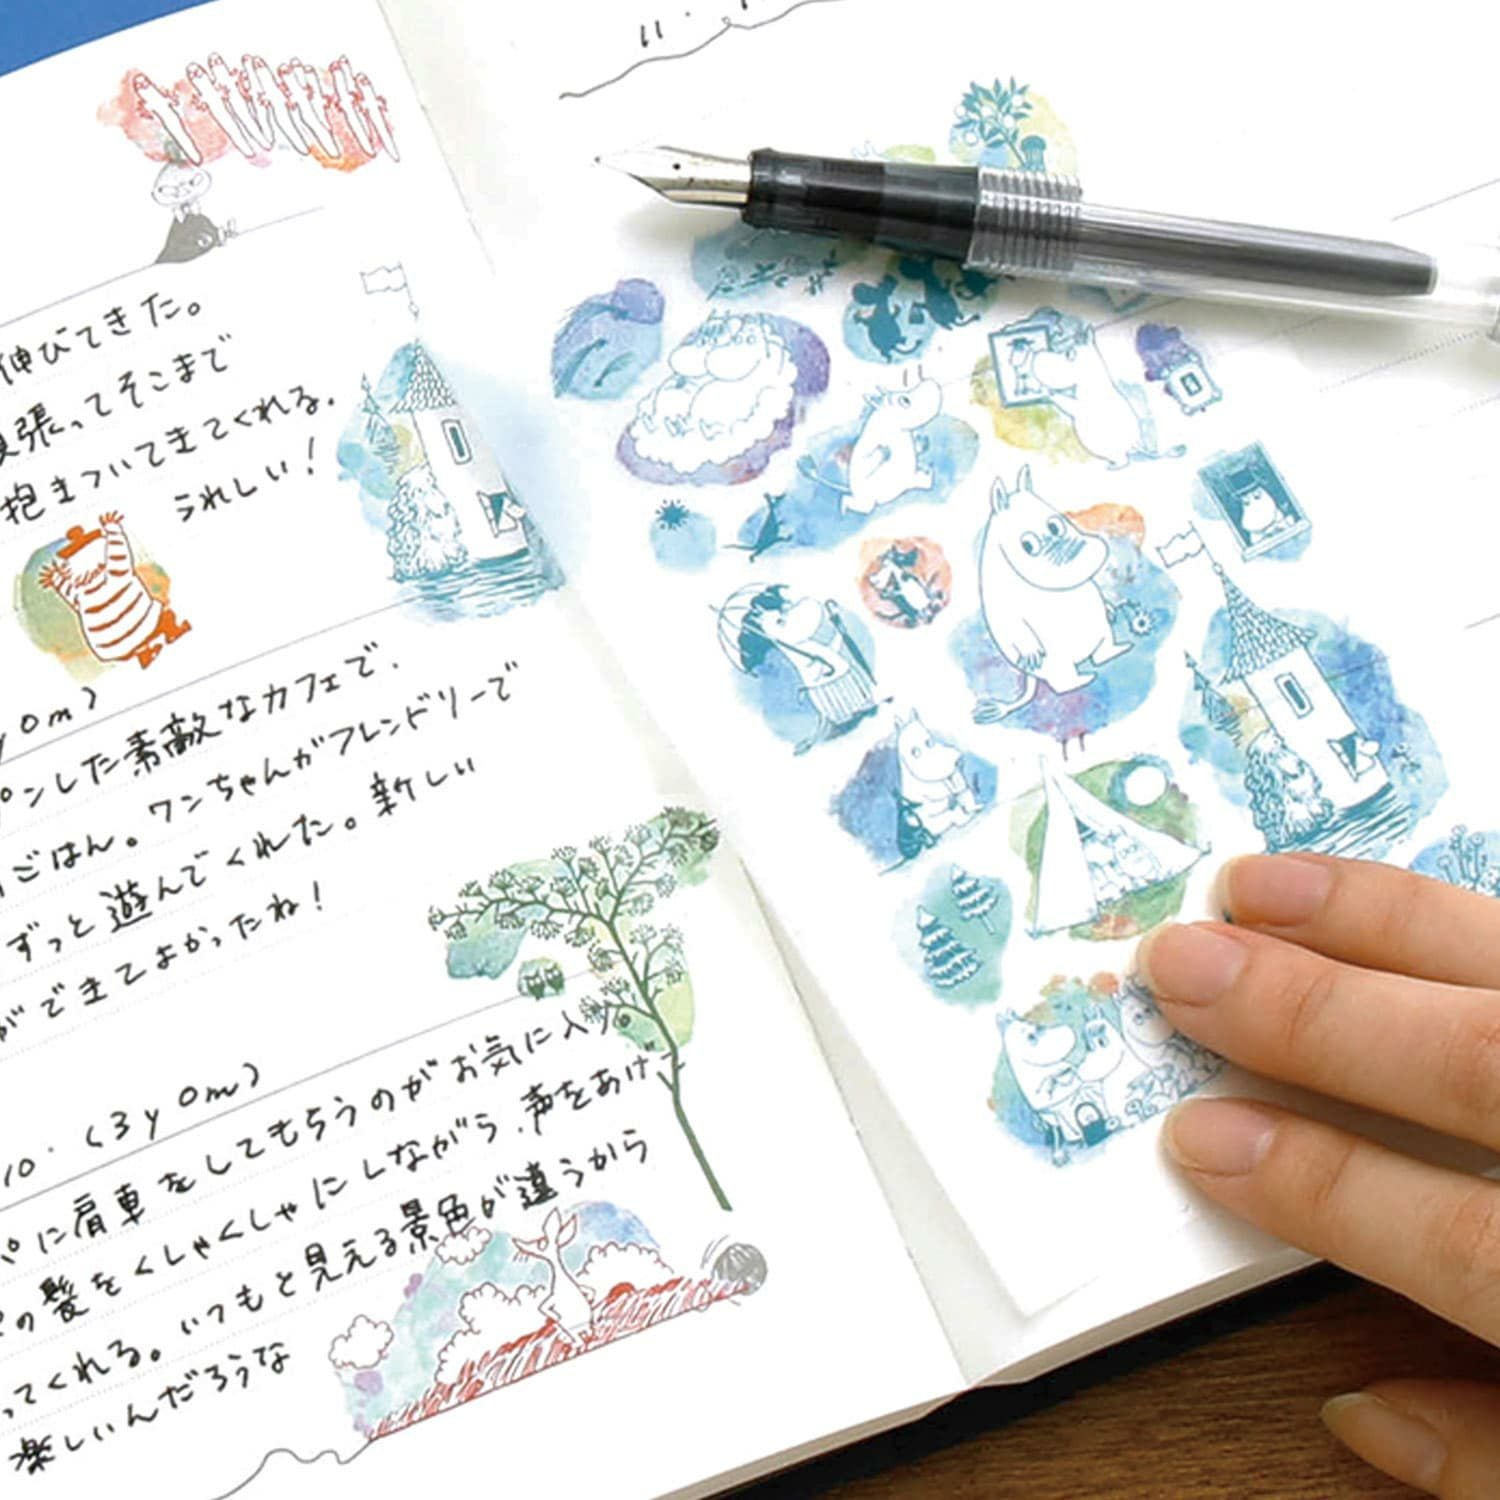 11・
伸びてきた。
張ってそこまで
抱きついてきてくれる.
うれしい!
y0m)
プンした素敵なカフェで.
ごはん。ワンちゃんがフレンドリーで
ずっと遊んでくれた。新しい
ができてよかったね!
10・(3y0m)
パに肩車をしてもらうのがお気に入り。
の髪をくしゃくしゃにしながら.声をあげて
ってくれる。いつもと見える景色が違うから
楽しいんだろうな